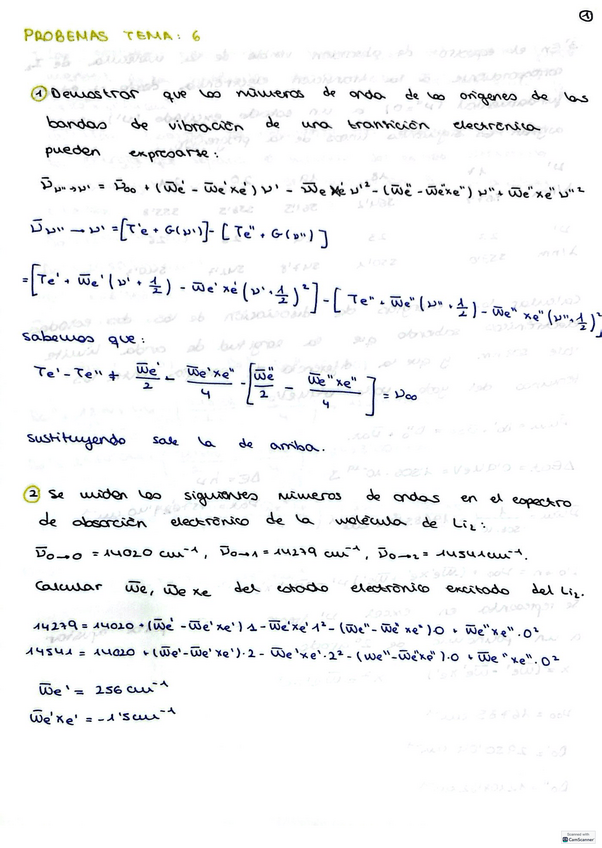 ①
PROBEMAS TEMA: 6
① Demostrar que los números de onda de los orígenes de las
bandas de vibración de una transición electrónica
pueden expresarse:
ν̄ν"→ν' = ν̄00 + (w̄e' - w̄e'xe') ν' - w̄e'xe' ν'² - (w̄e" - w̄e"xe") ν" + w̄e"xe" ν"²
ν̄ν"→ν' = [T'e + G(ν')] - [Te" + G(ν")]
= [Te' + w̄e'(ν' + 1/2) - w̄e'xe'(ν' + 1/2)²] - [Te" + w̄e"(ν" + 1/2) - w̄e"xe"(ν" + 1/2)²
sabemos que:
Te' - Te" + w̄e'/2 - w̄e'xe"/4 - [w̄e"/2 - w̄e"xe"/4] = ν00
sustituyendo sale la de arriba.
② Se miden los siguientes números de ondas en el espectro
de absorción electrónico de la molécula de Li₂:
ν̄0→0 = 14020 cm⁻¹, ν̄0→1 = 14279 cm⁻¹, ν̄0→2 = 14541 cm⁻¹.
Calcular w̄e, w̄e xe del estado electrónico excitado del Li₂.
14279 = 14020 + (w̄e' - w̄e'xe') 1 - w̄e'xe' 1² - (w̄e" - w̄e"xe").0 + w̄e"xe".0²
14541 = 14020 + (w̄e' - w̄e'xe').2 - w̄e'xe'.2² - (we" - w̄e"xe").0 + w̄e"xe".0²
w̄e' = 256 cm⁻¹
w̄e'xe' = -1'5 cm⁻¹
Scanned with
CS CamScanner